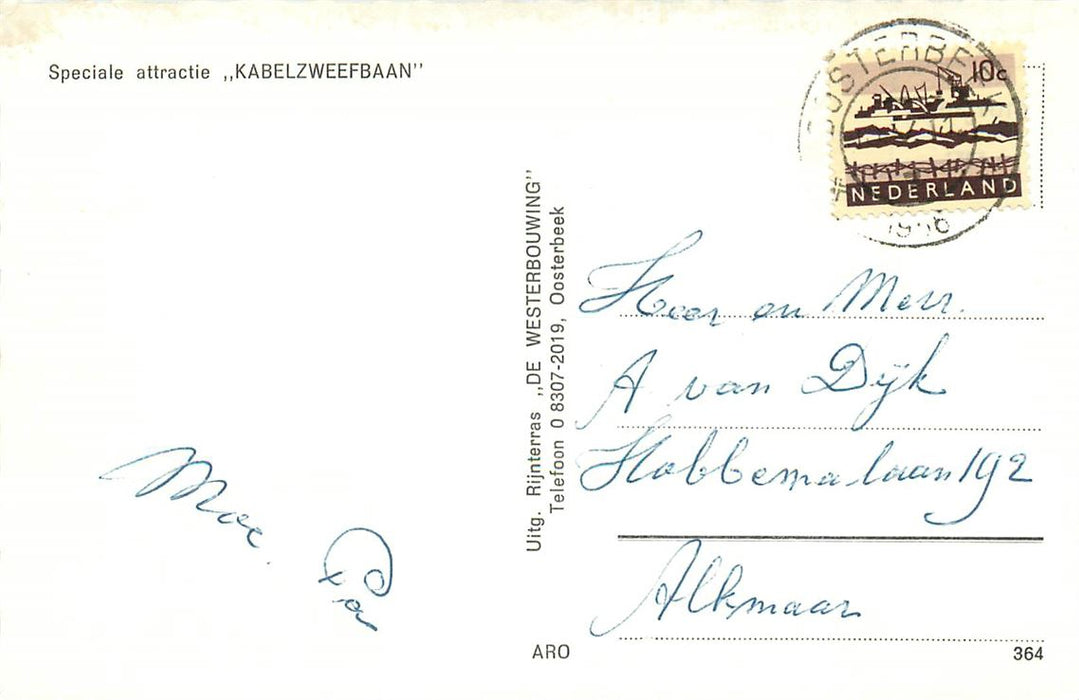 Speciale attractie „KABELZWEEFBAAN”
Moe. Pa
Uitg. Rijnterras „DE WESTERBOUWING”
Telefoon 0 8307-2019, Oosterbeek
OOSTERBEEK
10c
NEDERLAND
Heer en Mevr.
A van Dijk
Hobbemalaan 192
Alkmaar
ARO
364